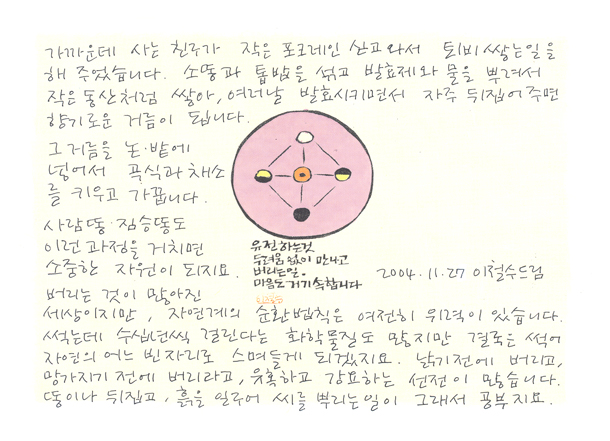 가까운데 사는 친구가 작은 포크레인 산고와서 퇴비 쌓는일을
해 주었습니다. 소똥과 톱밥을 섞고 발효제와 물을 뿌려서
작은동산처럼 쌓아, 여러날 발효시키면서 자주 뒤집어주면
향기로운 거름이 됩니다.
그거름을 논·밭에
넣어서 곡식과 채소
를 키우고 가꿉니다.
사람똥·짐승똥도
이런과정을 거치면
소중한 자원이 되지요.
버리는 것이 많아진
세상이지만, 자연계의 순환법칙은 여전히 위력이 있습니다.
썩는데 수십년씩 걸린다는 화학물질도 많지만 결국은 썩어
자연의 어느 빈자리로 스며들게 되겠지요. 낡기전에 버리고,
망가지기 전에 버리라고, 유혹하고 강요하는 선전이 많습니다.
똥이나 뒤집고, 흙을 일구어 씨를 뿌리는일이 그래서 공부지요.
유전하는것
두려움 없이 만나고
버리는일.
마음도 거기 속합니다
2004.11.27 이철수드림